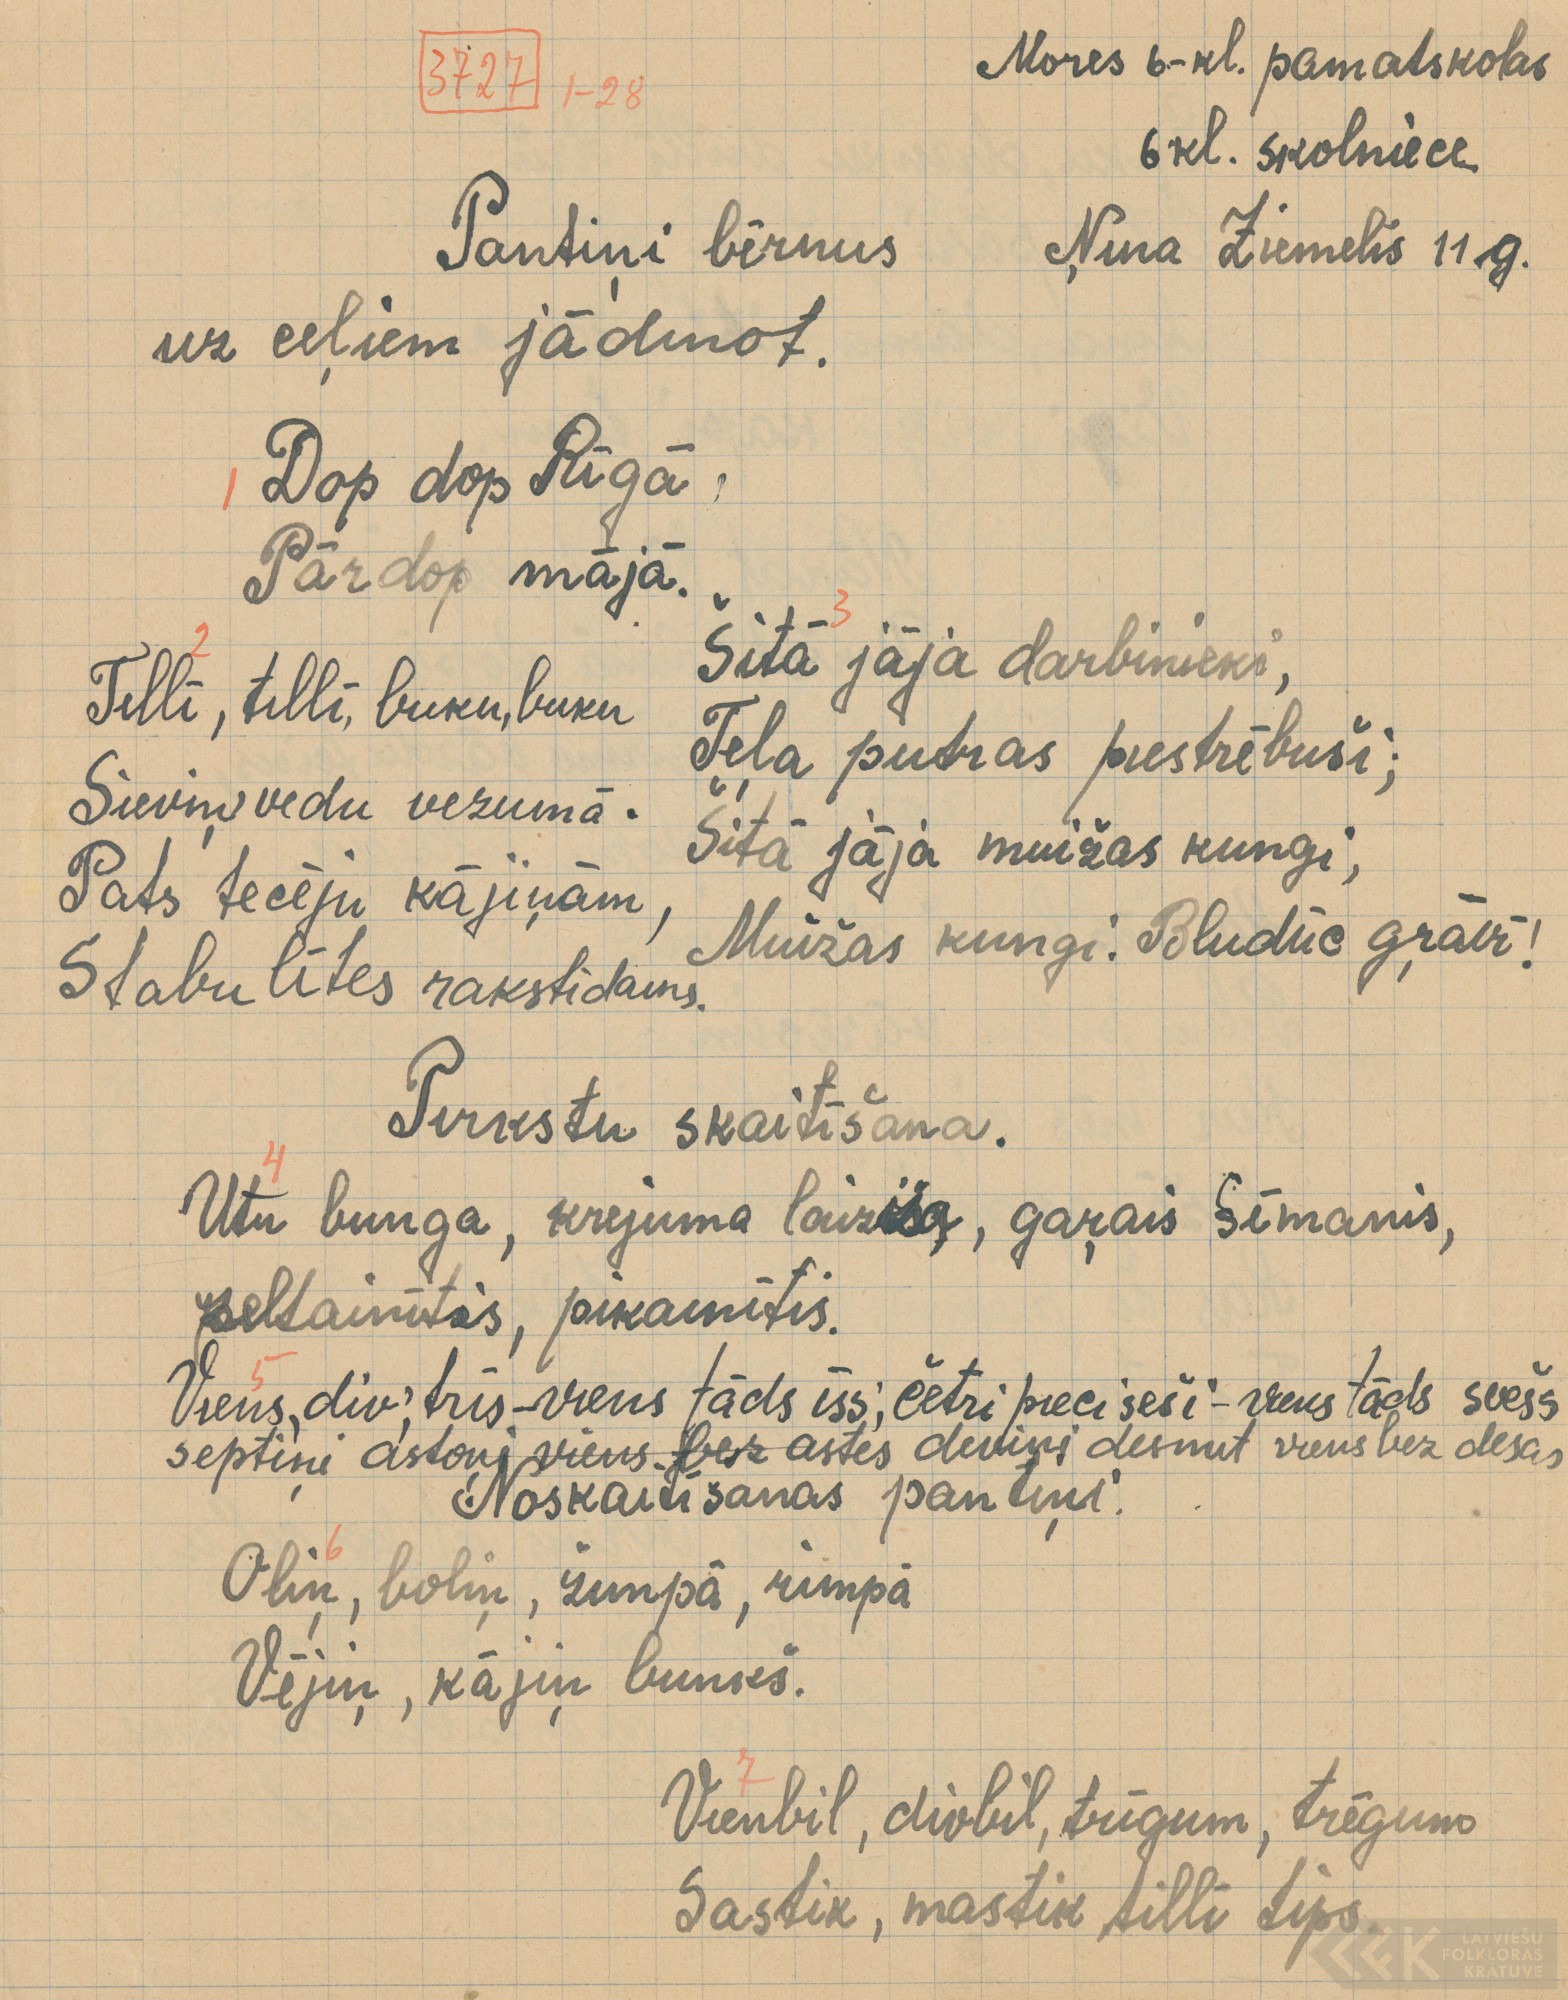 3727 1-28
Mores 6-kl. pamatskolas
6 kl. skolniece
Ņina Ziemelis 11 g.
Pantiņi bērnus
uz ceļiem jādinot.
1 Dop dop Rīgā,
Pārdop mājā.
2
Tillī, tillī, buku, buku
Sieviņ vedu vezumā.
Pats tecēju kājiņām,
Stabulītes rakstīdams.
3
Šitā jāja darbinieki,
Teļa putras piestrēbuši;
Šitā jāja muižas kungi,
Muižas kungi: Bludūc grāvī!
Pirkstu skaitīšana.
4
Utu bunga, krejuma laiziša, gaŗais Sīmanis,
zeltainītis, pikainītis.
5
Viens, div', trīs – viens tāds īss; četri pieci seši – viens tāds svešs
septiņi astoņi viens bez astes deviņi desmit viens bez desas
Noskaitīšanas pantiņi.
6
Oliņ, boliņ, žumpā, rimpā
Vējiņ, kājiņ bunkš.
7
Vienbil, divbil, trīgum, trēgum
Sastik, mastik tillī tips.
LATVIEŠU
FOLKLORAS
KRĀTUVE